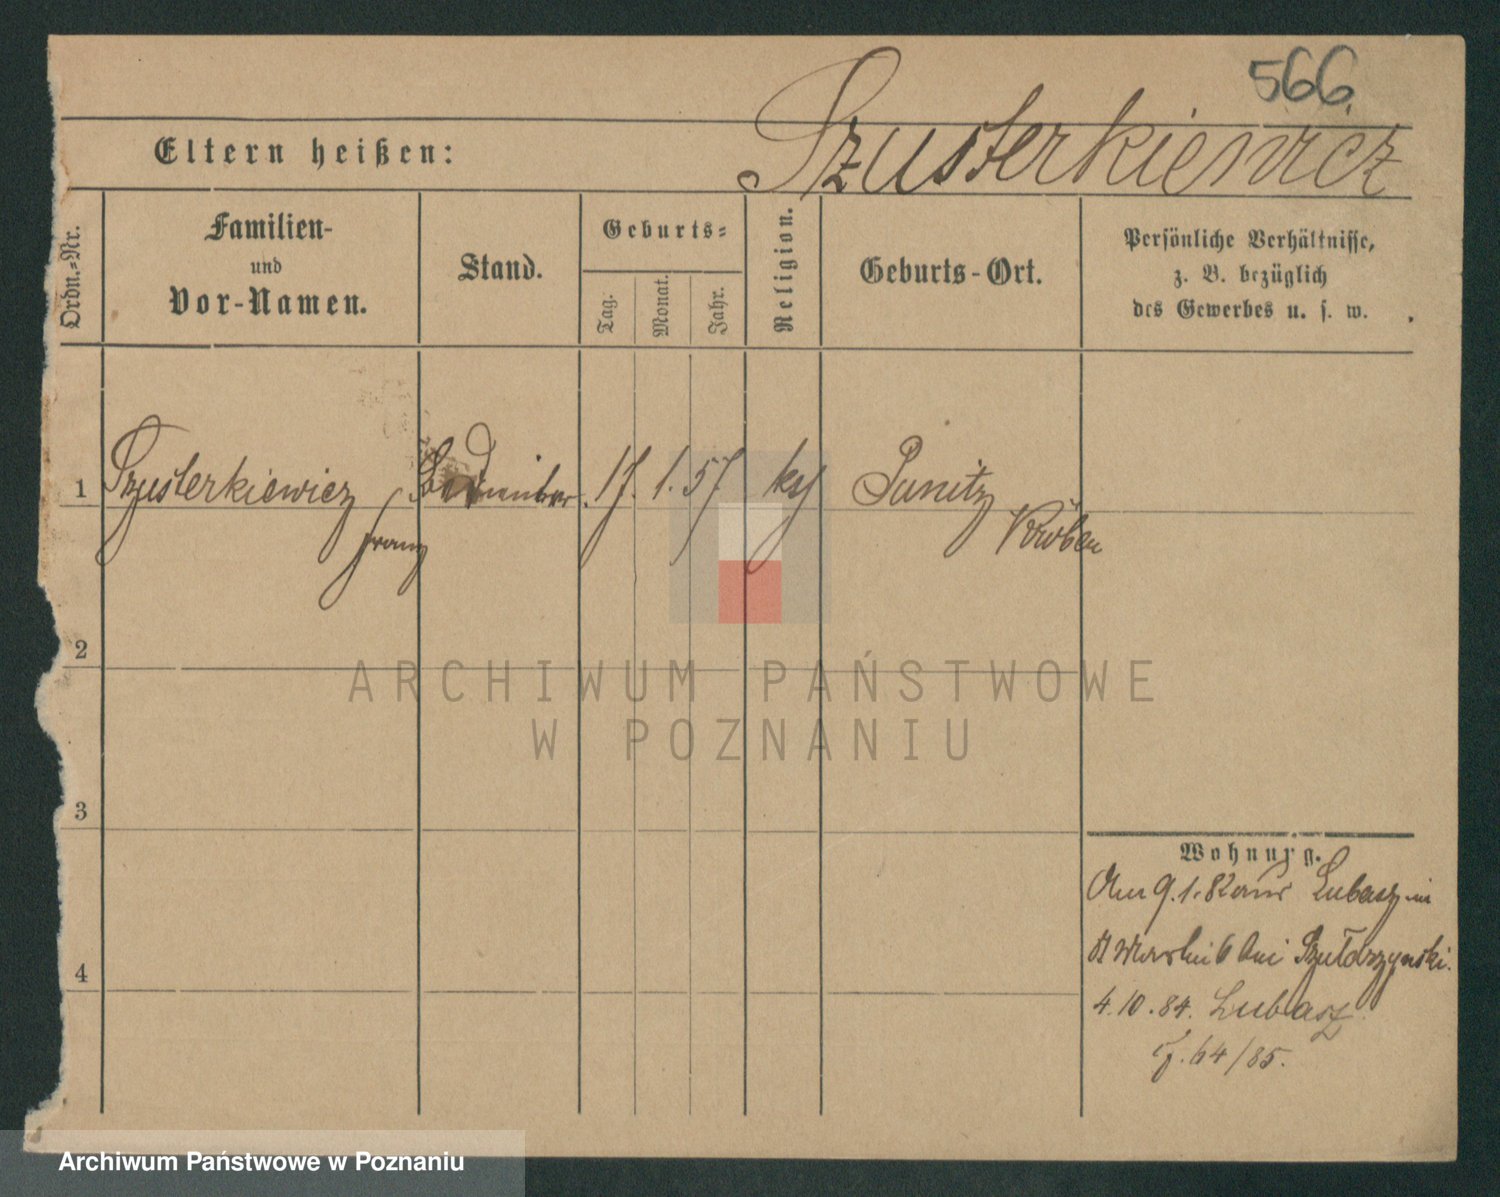 566
Szusterkiewicz
Eltern heißen:
Ordn.-Nr.
Familien-
und
Vor-Namen.
Stand.
Geburts-
Tag.
Monat.
Jahr.
Religion.
Geburts-Ort.
Persönliche Verhältnisse,
z. B. bezüglich
des Gewerbes u. s. w.
1 Szusterkiewicz 17. 1. 57 Punitz
Franz Kröben
2
ARCHIWUM PAŃSTWOWE
W POZNANIU
3
4
Wohnung.
Am 9.1.82 aus Lubasz in
St Martin 6 bei Szułdrzynski.
4.10.84. Lubasz
64/85.
Archiwum Państwowe w Poznaniu